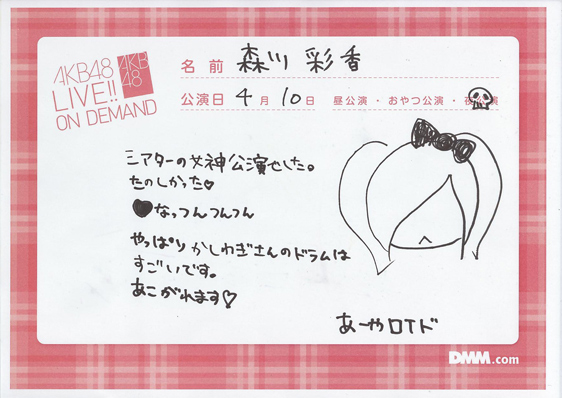 AKB48
LIVE!!
ON DEMAND
AKB
48
名前 森川彩香
公演日 4月10日 昼公演・おやつ公演・夜公演
シアターの女神公演でした。
たのしかった♡
♥なっつんつんつん
やっぱりかしわぎさんのドラムは
すごいです。
あこがれます♡
あーやロイド
DMM.com